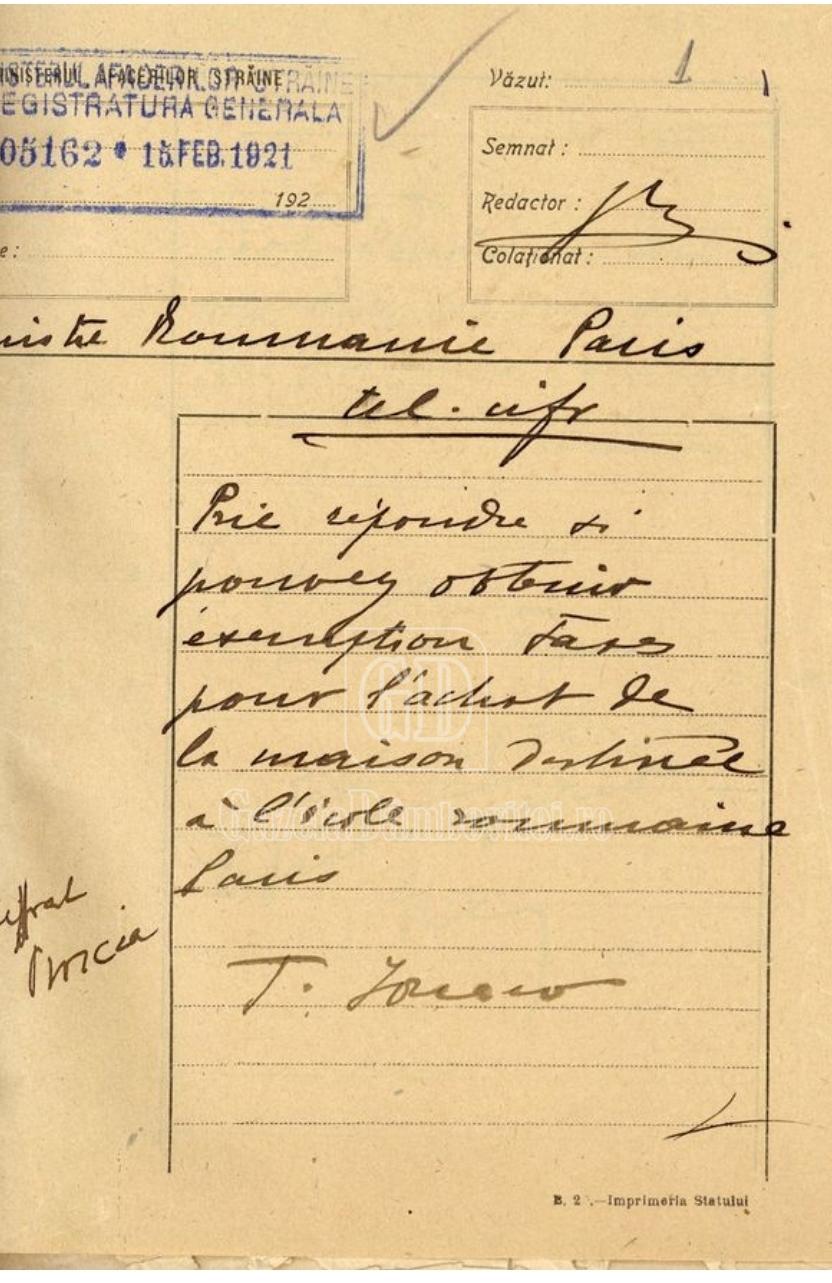 MINISTERUL AFACERILOR STRĂINE
REGISTRATURA GENERALA
05162 • 15.FEB.1921
192
e:
Văzut: 1
Semnat:
Redactor:
Colaționat:
nistre Roumanie Paris
tel. cifr
Prie répondre si
pouvez obtenir
exemption taxes
pour l'achat de
la maison destinée
à l'école roumaine
Paris
T.
GD
GazetaDambovitei.ro
B. 2 .—Imprimeria Statului